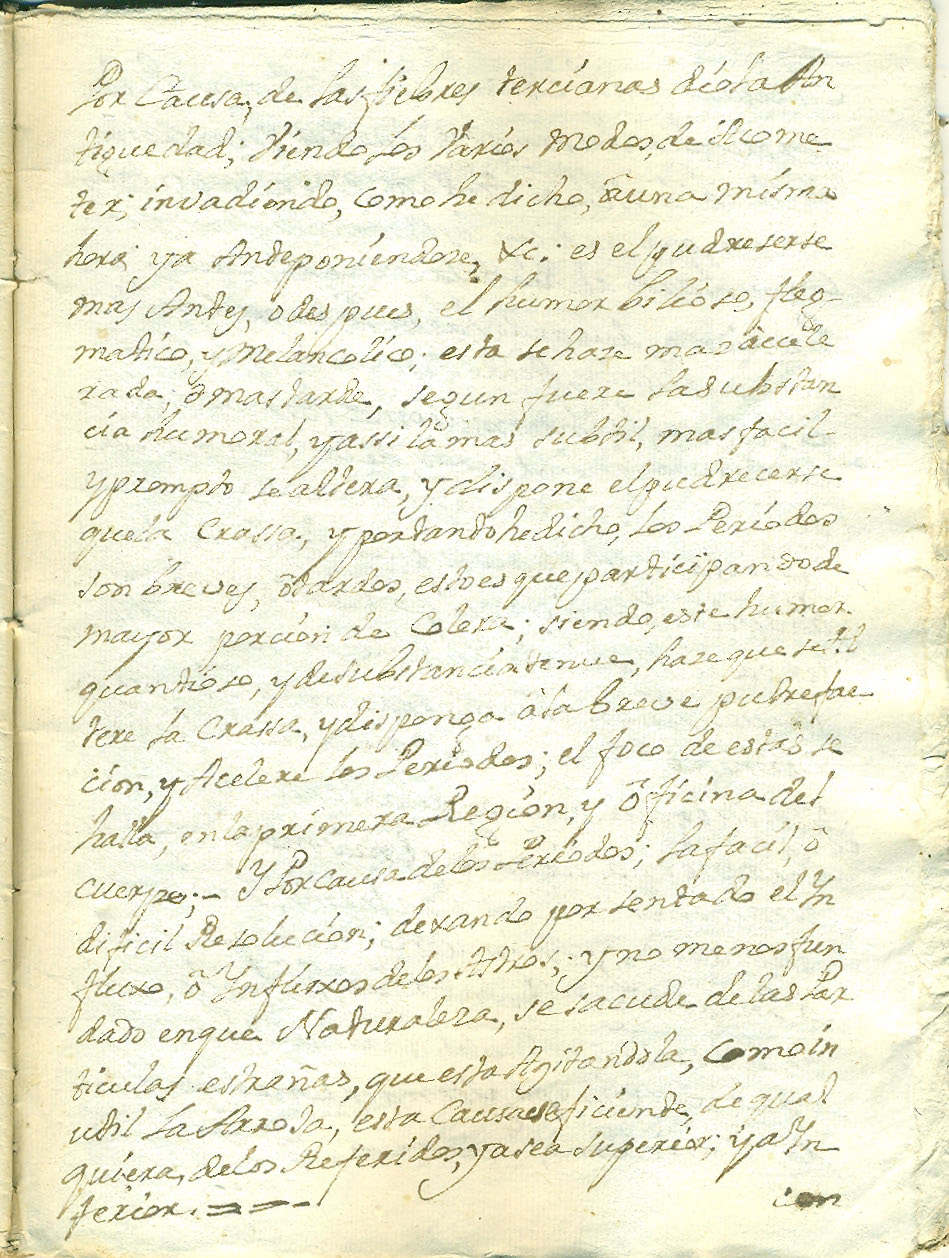 Por Causa, de las fiebres tercianas dió la An
tiguedad; Viendo los Varios modos, de Acome
ter; invadiendo, como he dicho, õ a una misma
hora ya Anteponiendose, &c: es el pudreserse
mas Antes, o despues, el humor bilioso, fleg-
matico, y Melancolico; esta se haze mas àccele
rada, õ mas tarde, segun fuere la substan
cia humoral, y assi la mas subtil, mas facil
y prompto se altera, y dispone el pudrecerse
que la Crassa, y por tanto he dicho, los Periodos
son breves, õ tardos, esto es que participando de
mayor porcion de Colera; siendo, este humor
quantioso, y de substancia tenue, haze que se Al
tere la Crassa, y disponga â la breve putrefac
cion, y Acelere los Periodos; el foco de estas se
halla, en la primera Region, y õficina del
cuerpo; - Y Por causa de los Periodos; la facil, õ
dificil Resolucion; dexando por sentado el Yn
fluxo, õ Ynfluxos de los Astros; y no menos fun
dado en que Naturaleza, se sacude de las Par
ticulas estrañas, que esta Agitandola, como in
util la Arroja, esta Causa eficiente, de qual
quiera, de los Referidos, ya sea superior; ya Yn
ferior. = = -
con